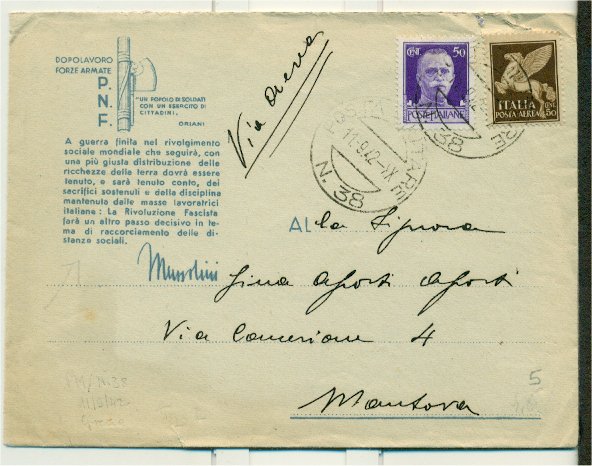 DOPOLAVORO
FORZE ARMATE
P.
N.
F.
"UN POPOLO DI SOLDATI
CON UN ESERCITO DI
CITTADINI.
ORIANI
A guerra finita nel rivolgimento
sociale mondiale che seguirà, con
una più giusta distribuzione delle
ricchezze della terra dovrà essere
tenuto, e sarà tenuto conto, dei
sacrifici sostenuti e della disciplina
mantenuta dalle masse lavoratrici
italiane: La Rivoluzione Fascista
farà un altro passo decisivo in te-
ma di raccorciamento delle di-
stanze sociali.
Mussolini
Via Aerea
CENT. 50
POSTE ITALIANE
ITALIA
POSTA AEREA
CENT 50
POSTA MILITARE
11.9.42-XX
N. 38
38
ALla Signora
Gina Aporti Aporti
Via Concezione 4
Mantova
PM/N.38
11/9/42
5